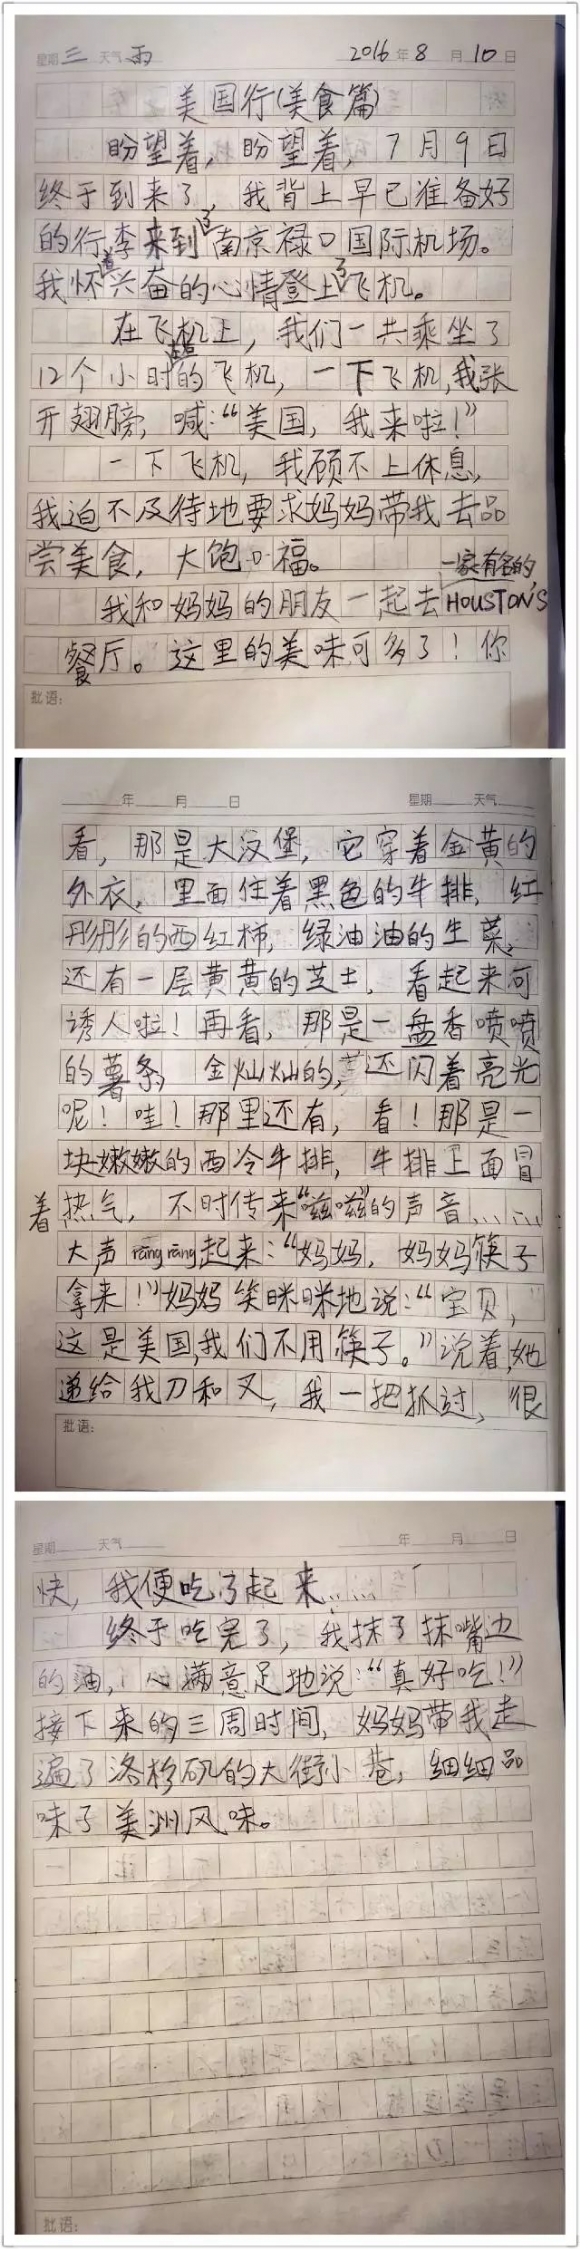 星期三 天气雨 2016年8月10日
美国行(美食篇)
盼望着，盼望着，7月9日
终于到来了，我背上早已准备好
的行李来到了南京禄口国际机场。
我怀着兴奋的心情登上了飞机。
在飞机上，我们一共乘坐了
12个小时的飞机，一下飞机，我张
开翅膀，喊：“美国，我来啦！”
一下飞机，我顾不上休息，
我迫不及待地要求妈妈带我去品
尝美食，大饱口福。
我和妈妈的朋友一起去一家有名的HOUSTON'S
餐厅。这里的美味可多了！你
批语：
年 月 日 星期 天气
看，那是大汉堡，它穿着金黄的
外衣，里面住着黑色的牛排，红
彤彤的西红柿，绿油油的生菜，
还有一层黄黄的芝士，看起来可
诱人啦！再看，那是一盘香喷喷
的薯条，金灿灿的，还闪着亮光
呢！哇！那里还有，看！那是一
块嫩嫩的西冷牛排，牛排上面冒
着热气，不时传来“嗞嗞”的声音……
大声rāng rāng起来：“妈妈，妈妈筷子
拿来！”妈妈笑眯眯地说：“宝贝，
这是美国，我们不用筷子。”说着，她
递给我刀和叉，我一把抓过，很
批语：
星期 天气 年 月 日
快，我便吃了起来……
终于吃完了，我抹了抹嘴边
的油，心满意足地说：“真好吃！”
接下来的三周时间，妈妈带我走
遍了洛杉矶的大街小巷，细细品
味了美洲风味。
批语：